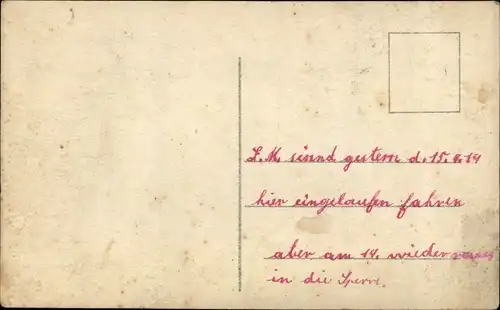 L. M. sinnd gestern d. 15.9.19
hier eingelaufen fahren
aber am 14. wieder
in die Sperre.